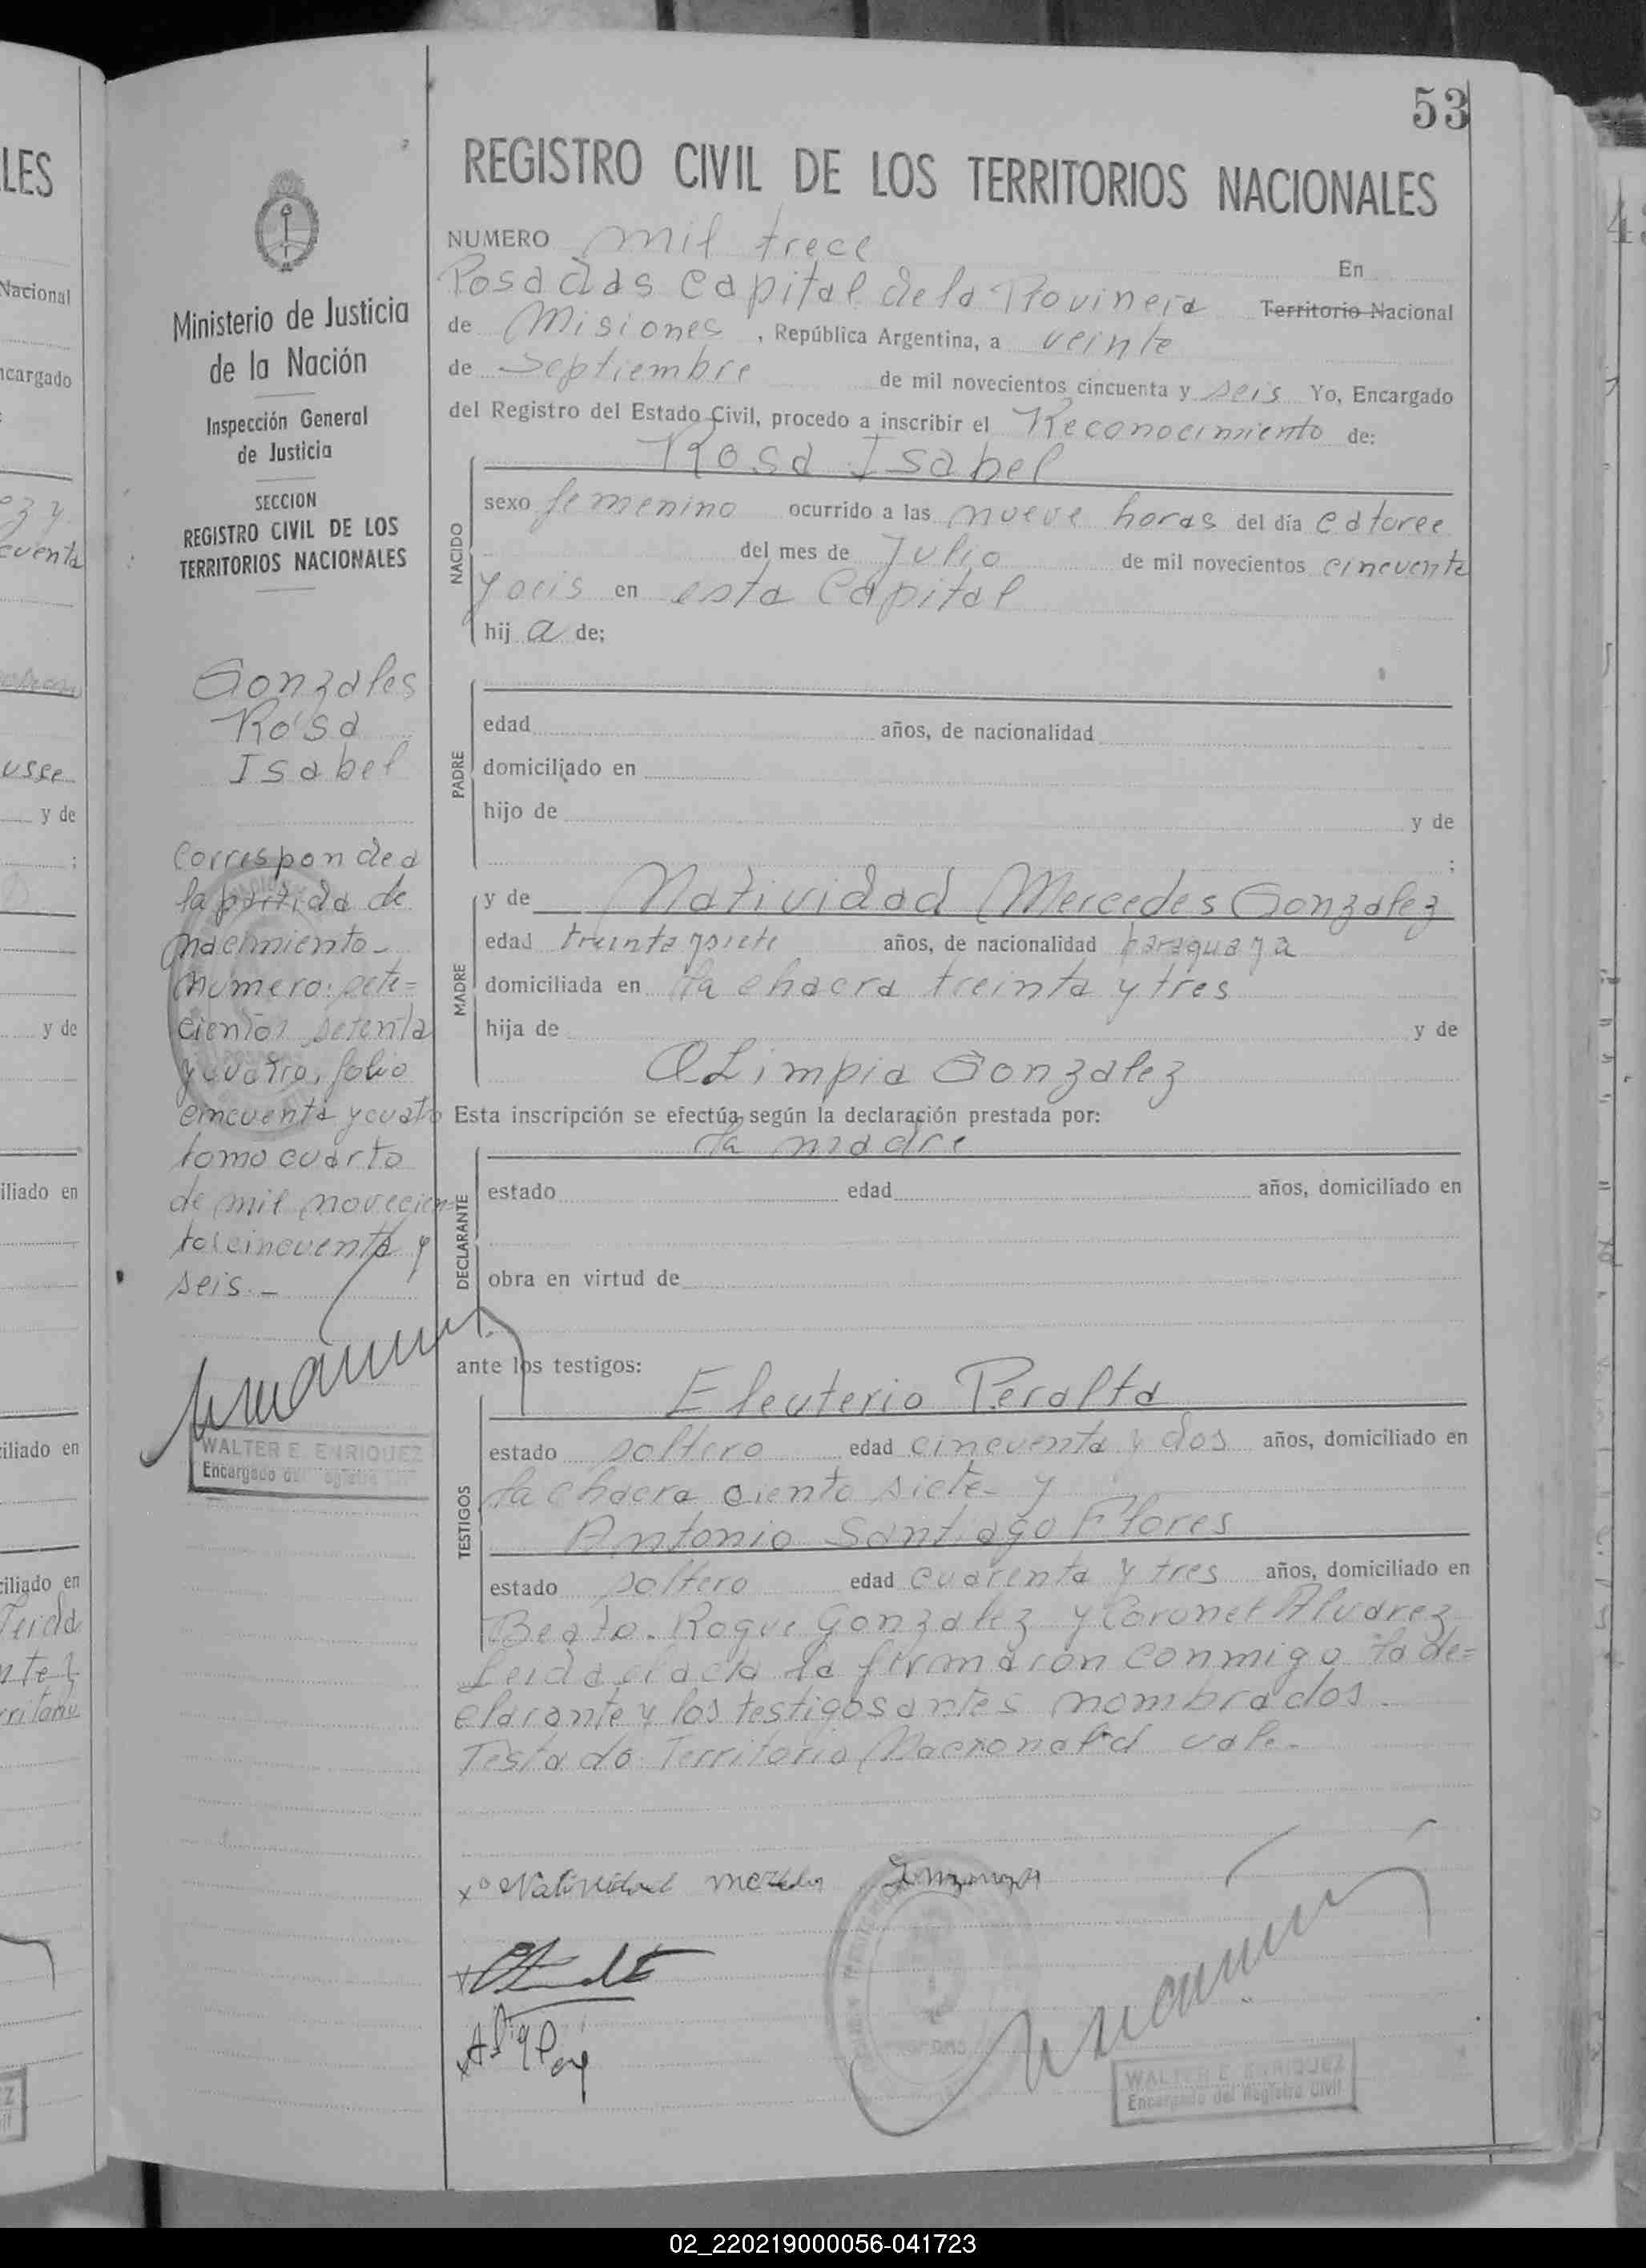 53
REGISTRO CIVIL DE LOS TERRITORIOS NACIONALES
NUMERO mil trece
En
Posadas Capital de la Provincia Territorio Nacional
de Misiones, República Argentina, a veinte
de Septiembre de mil novecientos cincuenta y seis Yo, Encargado
del Registro del Estado Civil, procedo a inscribir el Reconocimiento de:
Rosa Isabel
NACIDO
sexo femenino ocurrido a las nueve horas del día catorce
del mes de Julio de mil novecientos cincuenta
y seis en esta Capital
hij a de;
PADRE
edad años, de nacionalidad
domiciliado en
hijo de y de
;
MADRE
y de Natividad Mercedes Gonzalez
edad treinta y siete años, de nacionalidad paraguaya
domiciliada en la chacra treinta y tres
hija de y de
OLimpia Gonzalez
Esta inscripción se efectúa según la declaración prestada por:
la madre
DECLARANTE
estado edad años, domiciliado en
obra en virtud de
ante los testigos:
Eleuterio Peralta
TESTIGOS
estado soltero edad cincuenta y dos años, domiciliado en
la chacra ciento siete y
Antonio Santiago Flores
estado soltero edad cuarenta y tres años, domiciliado en
Beato Roque Gonzalez y Coronel Alvarez
Leida el acta la firmaron conmigo la de=
clarante y los testigos antes nombrados.
Testado: Territorio Nacional vale.
Natividad
WALTER E. ENRIQUEZ
Encargado del Registro Civil
Ministerio de Justicia
de la Nación
Inspección General
de Justicia
SECCION
REGISTRO CIVIL DE LOS
TERRITORIOS NACIONALES
Gonzales
Rosa
Isabel
Corresponde a
la partida de
nacimiento
numero: sete=
cientos setenta
y cuatro, folio
cincuenta y cuatro
tomo cuarto
de mil novecien=
tos cincuenta y
seis.-
WALTER E. ENRIQUEZ
Encargado del Registro Civil
LES
Nacional
ncargado
y de
;
y de
iliado en
iliado en
iliado en
02_220219000056-041723